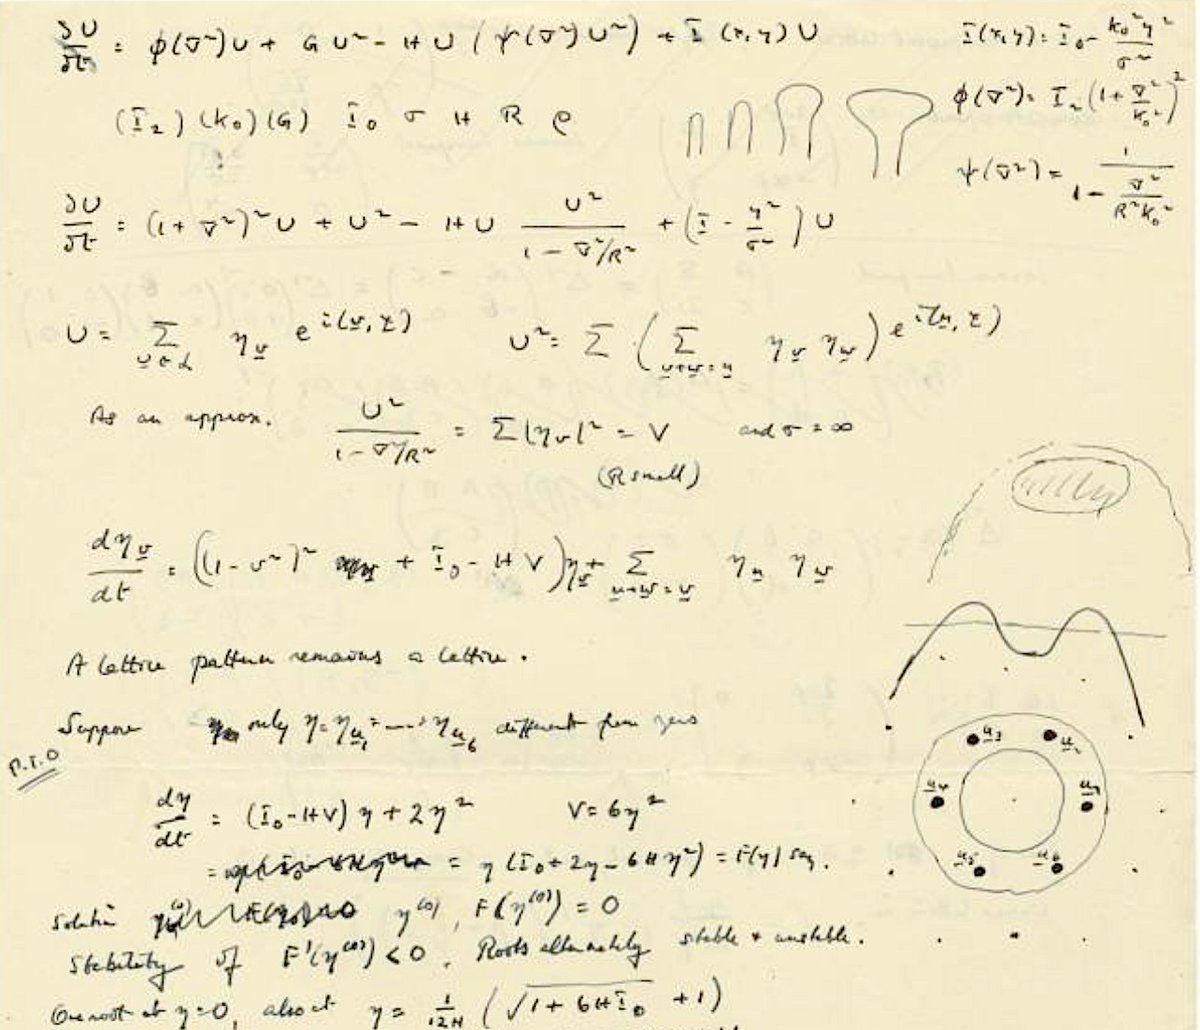 ∂U/∂t = φ(∇²)U + G U² − H U (ψ(∇²) U²) + I(x,y) U
I(x,y) = I₀ − k₀²y²/σ²
φ(∇²) = I₂(1 + ∇²/k₀²)²
(I₂) (k₀) (G) I₀ σ H R ρ
ψ(∇²) = 1/(1 − ∇²/R²k₀²)
∂U/∂t = (1 + ∇²)² U + U² − H U U²/(1 − ∇²/R²) + (I − y²/σ²) U
U = Σ η_v e^{i(v, r)} U² = Σ (Σ_{v+w=u} η_v η_w) e^{i(u, r)}
As an approx. U²/(1 − ∇²/R²) = Σ|η_v|² = V and σ = ∞
(R small)
dη_v/dt = ((1 − v²)² + I₀ − H V) η_v + Σ_{u+w=v} η_u η_w
A lattice pattern remains a lattice.
Suppose only η = η_{u₁} = ---> η_{u₆} different from zero
P.T.O
dη/dt = (I₀ − HV) η + 2η² V = 6η²
= η (I₀ + 2η − 6Hη²) = F(η) say.
Solution η⁽⁰⁾, F(η⁽⁰⁾) = 0
Stability if F'(η⁽⁰⁾) < 0. Roots alternately stable + unstable.
One root at η=0, also at η = 1/12H (√(1 + 6HI₀) + 1)
u₃ u₂
u₄ u₁
u₅ u₆